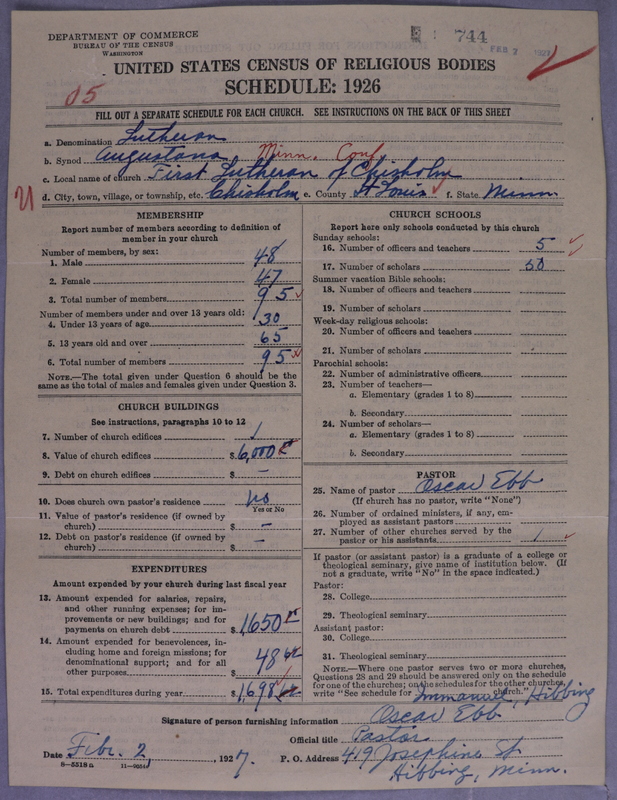 DEPARTMENT OF COMMERCE
BUREAU OF THE CENSUS
WASHINGTON
744
FEB 7 1927
UNITED STATES CENSUS OF RELIGIOUS BODIES
SCHEDULE: 1926
05
FILL OUT A SEPARATE SCHEDULE FOR EACH CHURCH. SEE INSTRUCTIONS ON THE BACK OF THIS SHEET
a. Denomination Lutheran
b. Synod Augustana Minn. Conf
c. Local name of church First Lutheran of Chisholm
d. City, town, village, or township, etc. Chisholm e. County St Louis f. State Minn.
MEMBERSHIP
Report number of members according to definition of
member in your church
Number of members, by sex:
1. Male 48
2. Female 47
3. Total number of members 95
Number of members under and over 13 years old:
4. Under 13 years of age 30
5. 13 years old and over 65
6. Total number of members 95
NOTE.—The total given under Question 6 should be the
same as the total of males and females given under Question 3.
CHURCH BUILDINGS
See instructions, paragraphs 10 to 12
7. Number of church edifices 1
8. Value of church edifices $6,000
9. Debt on church edifices $ –
10. Does church own pastor's residence No
Yes or No
11. Value of pastor's residence (if owned by
church) $ –
12. Debt on pastor's residence (if owned by
church) $ –
EXPENDITURES
Amount expended by your church during last fiscal year
13. Amount expended for salaries, repairs,
and other running expenses; for im-
provements or new buildings; and for
payments on church debt $1,650
14. Amount expended for benevolences, in-
cluding home and foreign missions; for
denominational support; and for all
other purposes 48
15. Total expenditures during year $1,698
CHURCH SCHOOLS
Report here only schools conducted by this church
Sunday schools:
16. Number of officers and teachers 5
17. Number of scholars 50
Summer vacation Bible schools:
18. Number of officers and teachers
19. Number of scholars
Week-day religious schools:
20. Number of officers and teachers
21. Number of scholars
Parochial schools:
22. Number of administrative officers
23. Number of teachers—
a. Elementary (grades 1 to 8)
b. Secondary
24. Number of scholars—
a. Elementary (grades 1 to 8)
b. Secondary
PASTOR
25. Name of pastor Oscar Ebb
(If church has no pastor, write "None")
26. Number of ordained ministers, if any, em-
ployed as assistant pastors
27. Number of other churches served by the
pastor or his assistants 1
If pastor (or assistant pastor) is a graduate of a college or
theological seminary, give name of institution below. (If
not a graduate, write "No" in the space indicated.)
Pastor:
28. College
29. Theological seminary
Assistant pastor:
30. College
31. Theological seminary
NOTE.—Where one pastor serves two or more churches,
Questions 28 and 29 should be answered only on the schedule
for one of the churches; on the schedules for the other churches,
write "See schedule for Immanuel church." , Hibbing
Signature of person furnishing information Oscar Ebb
Official title Pastor
Date Febr. 2, 1927. P. O. Address 419 Josephine St
8-5518 a Hibbing, Minn.